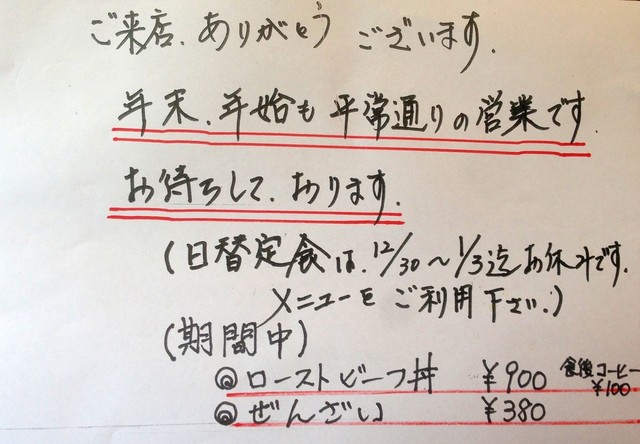 ご来店、ありがとうございます.
年末、年始も平常通りの営業です.
お待ちして、おります.
(日替定食は、12/30〜1/3迄お休みです.
メニューをご利用下さい.)
(期間中)
◎ローストビーフ丼 ¥900 食後コーヒー ¥100
◎ぜんざい ¥380